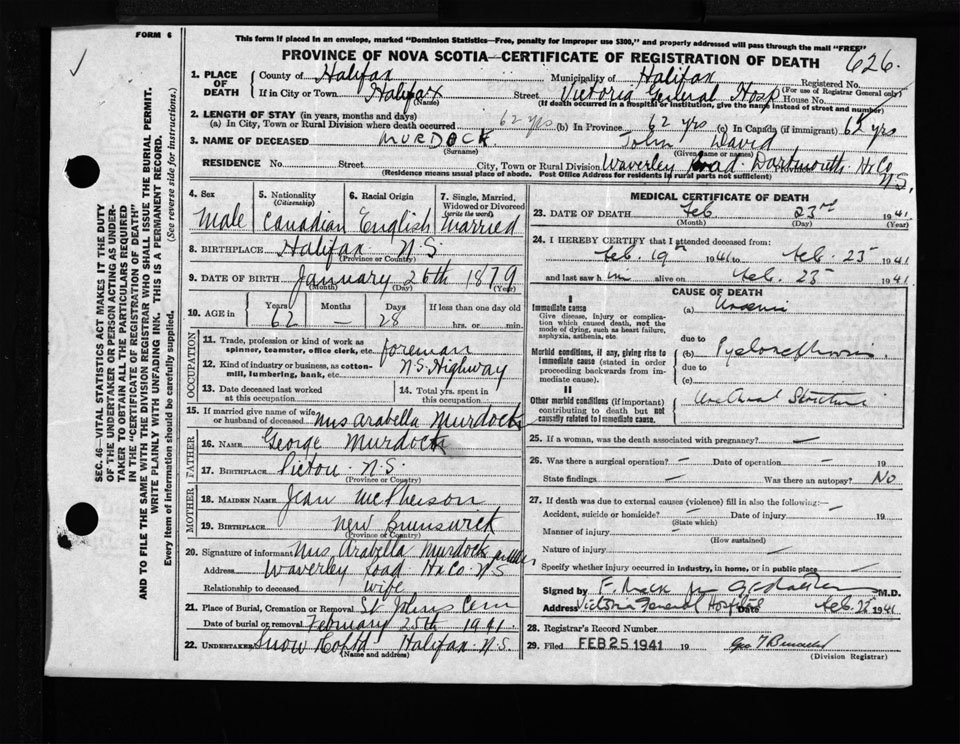 FORM 6
This form if placed in an envelope, marked "Dominion Statistics—Free, penalty for improper use $300," and properly addressed will pass through the mail "FREE"
PROVINCE OF NOVA SCOTIA—CERTIFICATE OF REGISTRATION OF DEATH
626.
1. PLACE OF DEATH
County of Halifax Municipality of Halifax Registered No.
(For use of Registrar General only)
If in City or Town Halifax Street Victoria General Hosp House No.
(Name) (If death occurred in a hospital or institution, give the name instead of street and number)
2. LENGTH OF STAY (in years, months and days)
(a) In City, Town or Rural Division where death occurred 62 yrs (b) In Province 62 yrs (c) In Canada (if immigrant) 62 yrs
3. NAME OF DECEASED MURDOCK John David
(Surname) (Given name or names)
RESIDENCE No. Street City, Town or Rural Division Waverley Road Dartmouth Province Hx Co N.S.
(Residence means usual place of abode. Post Office Address for residents in rural parts not sufficient)
4. Sex
Male
5. Nationality
(Citizenship)
Canadian
6. Racial Origin
English
7. Single, Married, Widowed or Divorced
(write the word)
Married
8. BIRTHPLACE Halifax N.S
(Province or Country)
9. DATE OF BIRTH January 26th 1879
(Month) (Day) (Year)
10. AGE in
Years 62
Months —
Days 28
If less than one day old
hrs. or min.
OCCUPATION
11. Trade, profession or kind of work as spinner, teamster, office clerk, etc. foreman
12. Kind of industry or business, as cotton-mill, lumbering, bank, etc. N.S. Highway
13. Date deceased last worked at this occupation
14. Total yrs. spent in this occupation
15. If married give name of wife or husband of deceased Mrs Arabella Murdock
FATHER
16. NAME George Murdock
17. BIRTHPLACE Pictou N.S.
(Province or Country)
MOTHER
18. MAIDEN NAME Jean McPherson
19. BIRTHPLACE New Brunswick
(Province or Country)
20. Signature of informant Mrs Arabella Murdock
Address Waverley Road Hx Co. N.S
Relationship to deceased wife
21. Place of Burial, Cremation or Removal St Johns Cem
Date of burial or removal February 25th 1941
22. UNDERTAKER Snow Halifax N.S.
(Name and address)
MEDICAL CERTIFICATE OF DEATH
23. DATE OF DEATH Feb 23rd 1941
(Month) (Day) (Year)
24. I HEREBY CERTIFY that I attended deceased from:
Feb. 19th 1941 to Feb. 23 1941
and last saw him alive on Feb. 23 1941
CAUSE OF DEATH
I
Immediate cause
Give disease, injury or complication which caused death, not the mode of dying, such as heart failure, asphyxia, asthenia, etc.
(a)
due to
Morbid conditions, if any, giving rise to immediate cause (stated in order proceeding backwards from immediate cause).
(b) Pyelonephrosis
due to
(c)
II
Other morbid conditions (if important) contributing to death but not causally related to immediate cause.
Urethral Stricture
25. If a woman, was the death associated with pregnancy? —
26. Was there a surgical operation? — Date of operation — 19
State findings — Was there an autopsy? No
27. If death was due to external causes (violence) fill in also the following:—
Accident, suicide or homicide? — Date of injury — 19
(State which)
Manner of injury —
(How sustained)
Nature of injury —
Specify whether injury occurred in industry, in home, or in public place —
Signed by M.D.
Address Victoria General Hospital Date Feb. 23 1941
28. Registrar's Record Number
29. Filed FEB 25 1941 19
(Division Registrar)
SEC. 46—VITAL STATISTICS ACT MAKES IT THE DUTY OF THE UNDERTAKER OR PERSON ACTING AS UNDERTAKER TO OBTAIN ALL THE PARTICULARS REQUIRED IN THE "CERTIFICATE OF REGISTRATION OF DEATH" AND TO FILE THE SAME WITH THE DIVISION REGISTRAR WHO SHALL ISSUE THE BURIAL PERMIT.
WRITE PLAINLY WITH UNFADING INK. THIS IS A PERMANENT RECORD.
Every item of information should be carefully supplied. (See reverse side for instructions.)